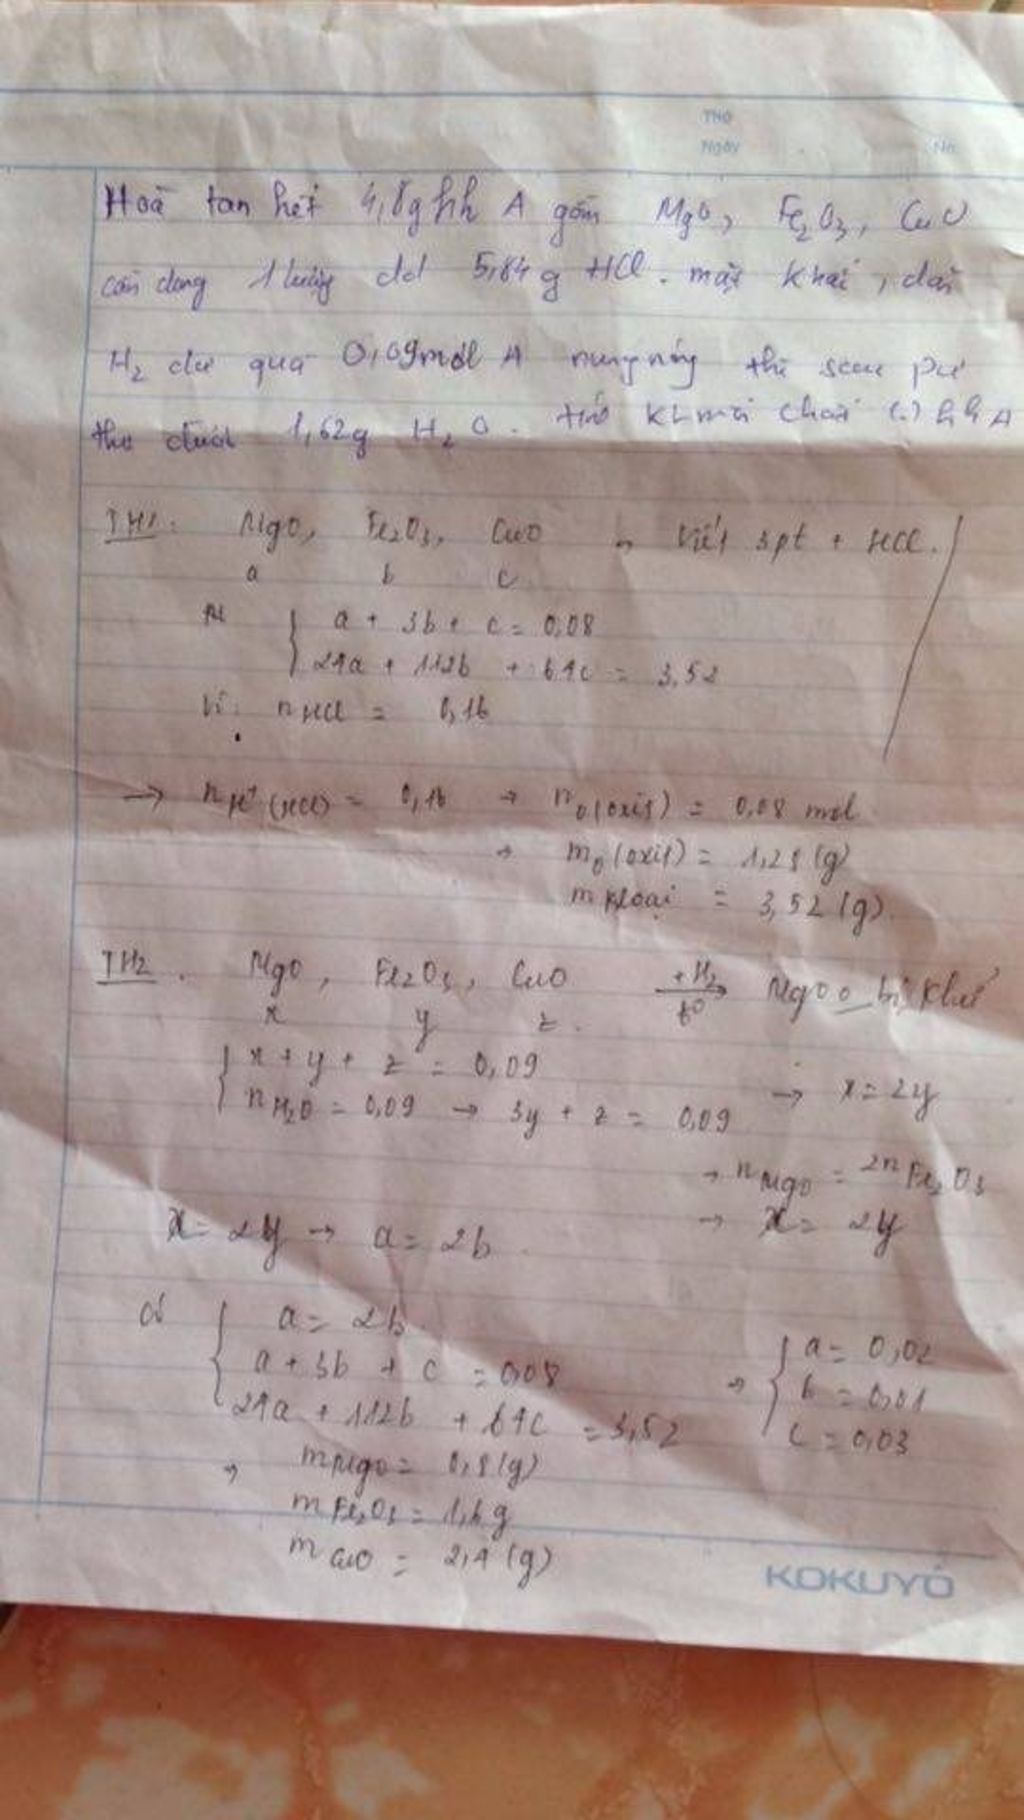 Thứ
Ngày
No.
Hoà tan hết 4,8g hh A gồm MgO, Fe2O3, CuO
cần dùng 1 lượng dd 5,84g HCl. mặt khác, dẫn
H2 dư qua 0,09mol A nung nóng thì sau pư
thu được 1,62g H2O. KL mỗi chất (.) hh A
TH1: MgO, Fe2O3, CuO Viết 3pt + HCl.
a b c
a + 3b + c = 0,08
24a + 112b + 64c = 3,52
Vì: nHCl = 0,16
→ nH+ (HCl) = 0,16 → nO(oxit) = 0,08 mol
→ mO(oxit) = 1,28 (g)
m kloại = 3,52 (g)
TH2. MgO, Fe2O3, CuO +H2 t° → MgO o bị khử
x y z.
x + y + z = 0,09
nH2O = 0,09 → 3y + z = 0,09 → x = 2y
→ nMgO = 2nFe2O3
→ x = 2y
x = 2y → a = 2b
có a = 2b
a + 3b + c = 0,08
24a + 112b + 64c = 3,52
→ a = 0,02
b = 0,01
c = 0,03
→ mMgO = 0,8 (g)
mFe2O3 = 1,6g
mCuO = 2,4 (g)
KOKUYO